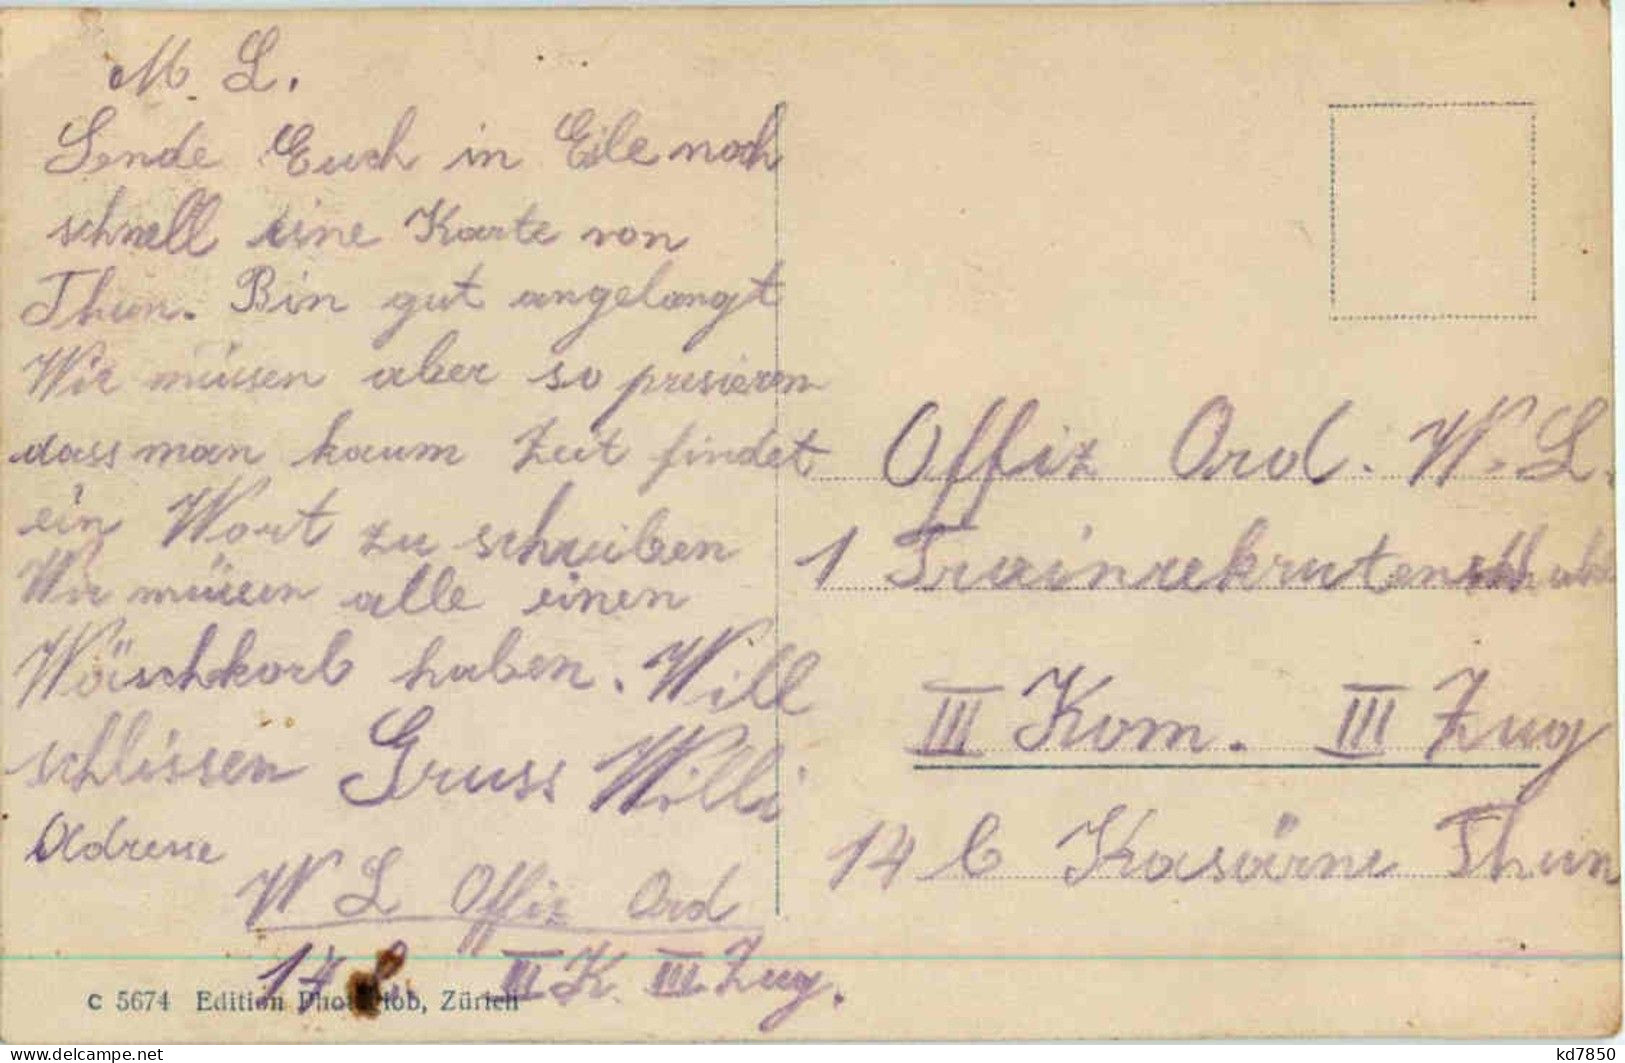 M. L.
Sende Euch in Eile noch
schnell eine Karte von
Thun. Bin gut angelangt
Wir müssen aber so presieren
dass man kaum Zeit findet
ein Wort zu schreiben
Wir müssen alle einen
Wäschkorb haben. Will
schlissen Gruss Willi
Adresse
W L Offiz Ord
III K. III. Zug.
C 5674 Edition Photoglob, Zürich
Offiz Ord. W. L.
1 Trainrekrutenschule
III Kom. III Zug
14 b Kasärne Thun
kd7850